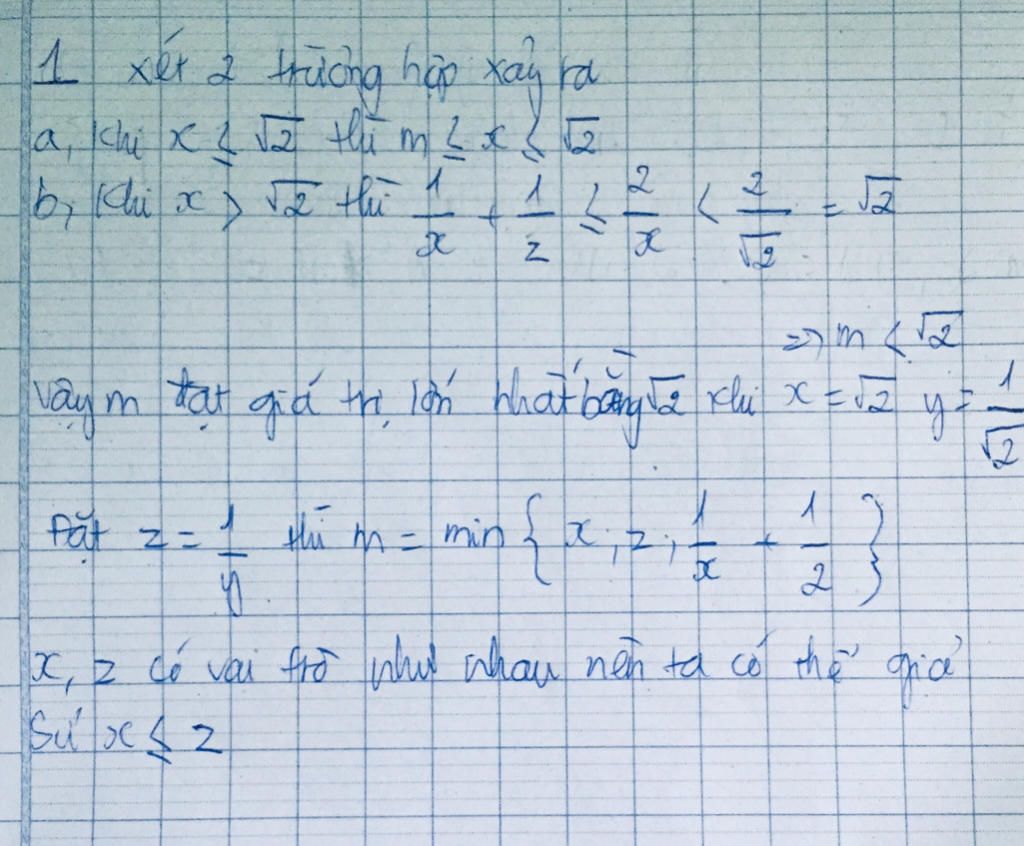 1 xét 2 trường hợp xảy ra
a, Khi x ≤ √2 thì m ≤ x ≤ √2
b, Khi x > √2 thì 1/x + 1/z ≤ 2/x < 2/√2 = √2
=> m < √2
Vậy m đạt giá trị lớn nhất bằng √2 khi x = √2 y = 1/√2
Đặt z = 1/y thì m = min { x ; z ; 1/x + 1/2 }
x, z có vai trò như nhau nên ta có thể giả
Sử x ≤ z